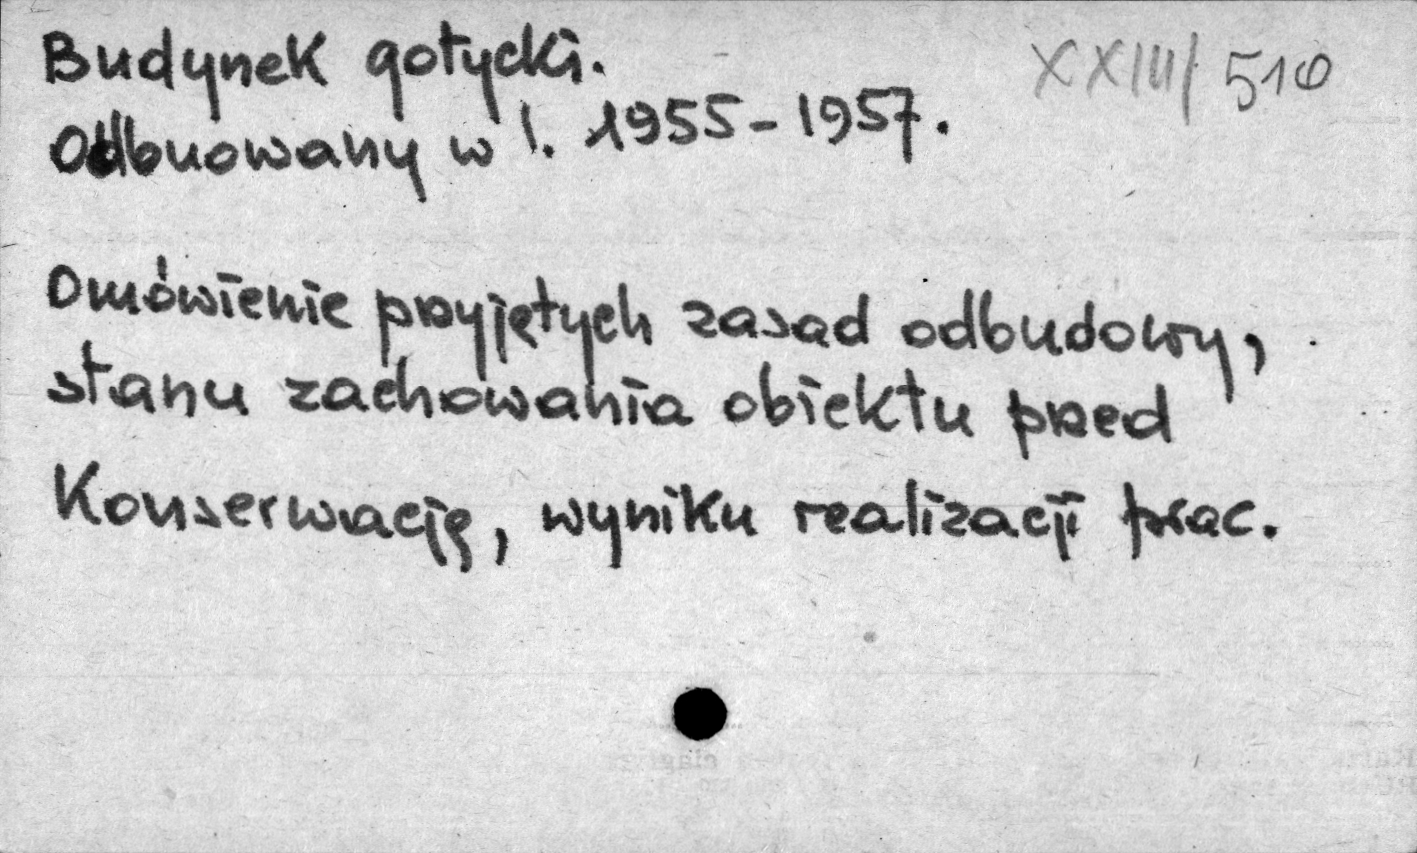 Budynek gotycki.
XXIII/510
Odbuowany w l. 1955-1957.
Omówienie przyjętych zasad odbudowy,
stanu zachowania obiektu przed
Konserwacją, wyniku realizacji prac.